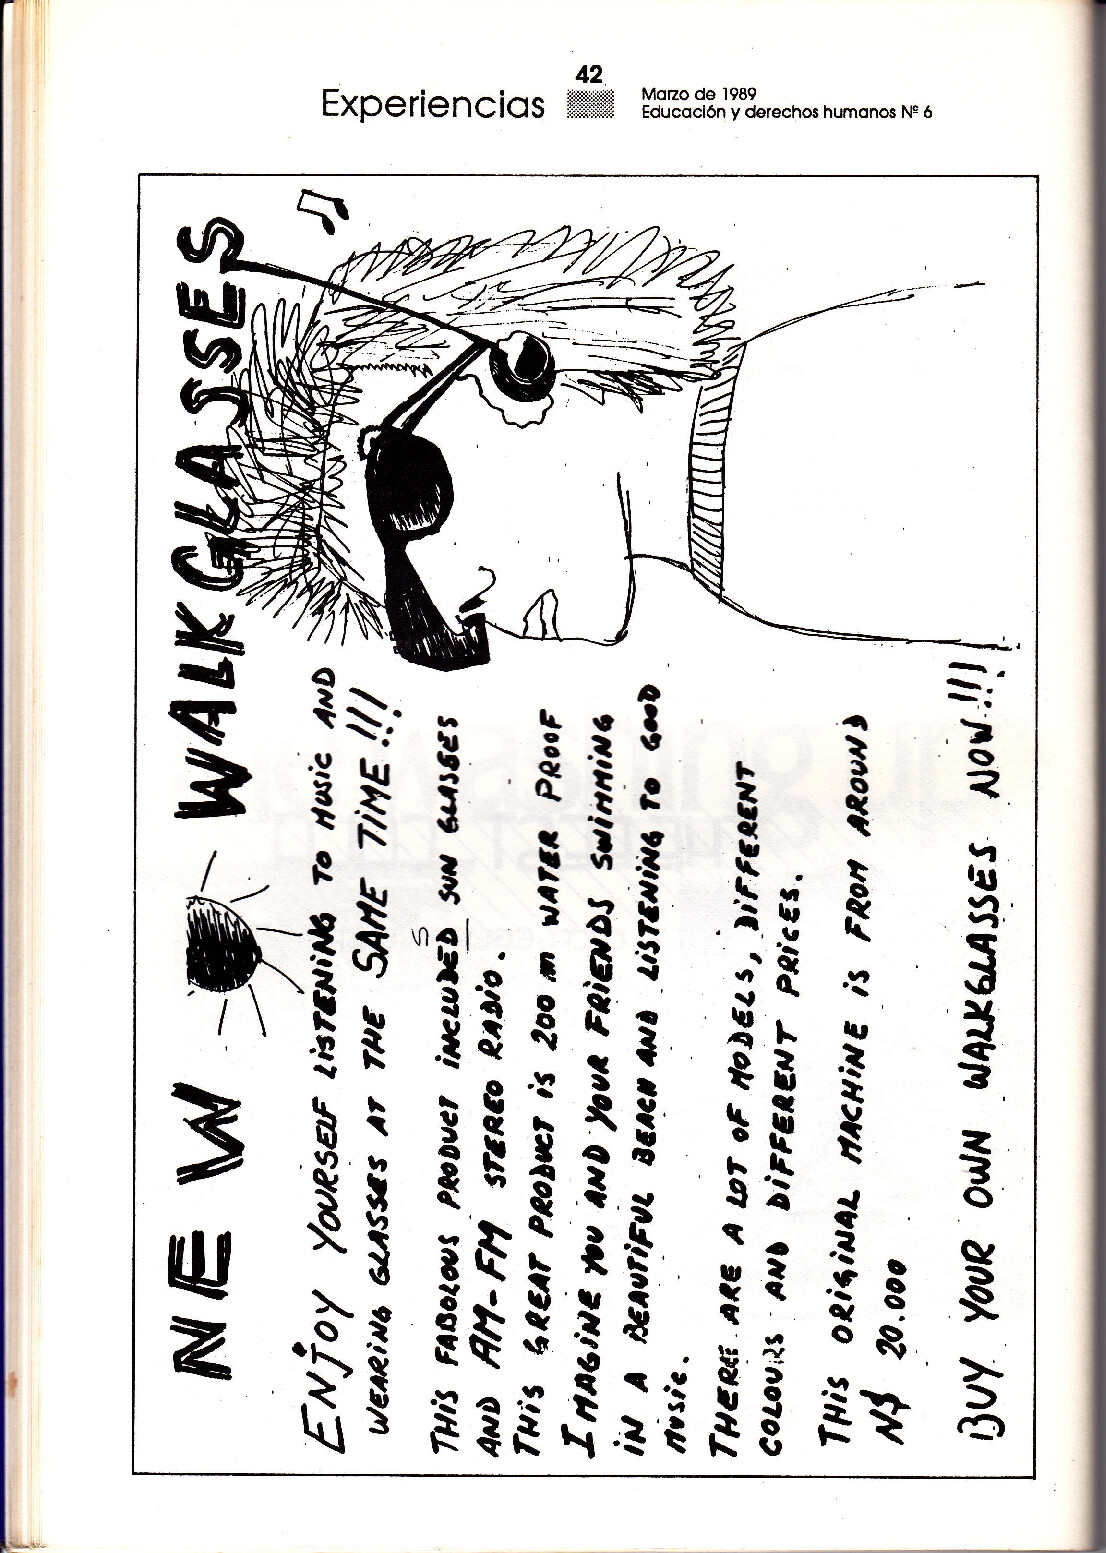 42
Experiencias
Marzo de 1989
Educación y derechos humanos Nº 6
NEW WALKGLASSES
ENJOY YOURSELF LISTENING TO MUSIC AND
WEARING GLASSES AT THE SAME TIME!!!
S
THIS FABOLOUS PRODUCT INCLUDED SUN GLASSES
AND AM-FM STEREO RADIO.
THIS GREAT PRODUCT IS 200 m WATER PROOF
IMAGINE YOU AND YOUR FRIENDS SWIMMING
IN A BEAUTIFUL BEACH AND LISTENING TO GOOD
MUSIC.
THERE ARE A LOT OF MODELS, DIFFERENT
COLOURS AND DIFFERENT PRICES.
THIS ORIGINAL MACHINE IS FROM AROUND
N$ 20.000
BUY YOUR OWN WALKGLASSES NOW!!!